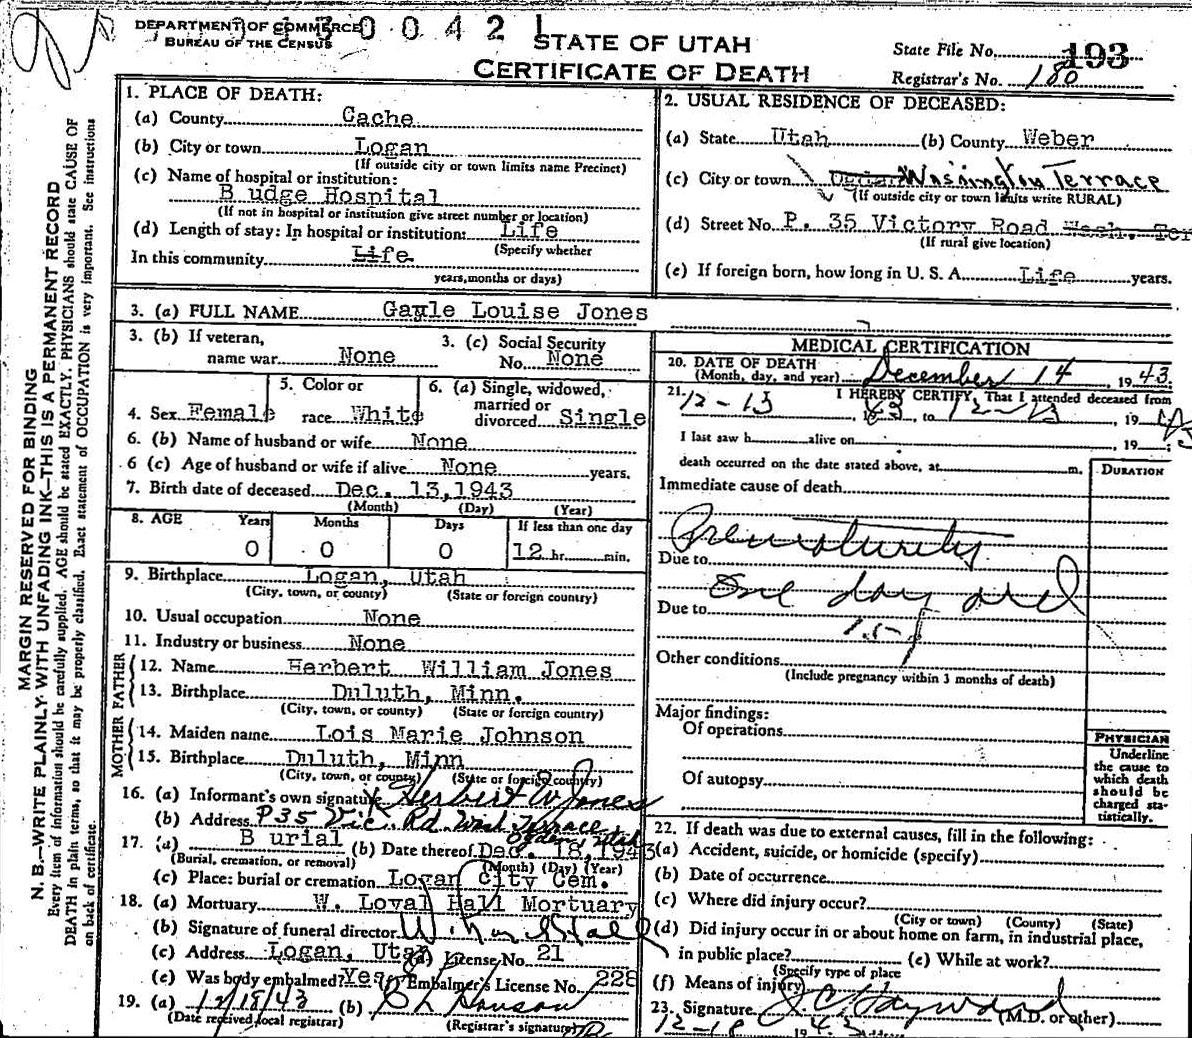 DEPARTMENT OF COMMERCE
BUREAU OF THE CENSUS
3 0 0 4 2 1
STATE OF UTAH
CERTIFICATE OF DEATH
State File No. 193
Registrar's No. 180
MARGIN RESERVED FOR BINDING
N. B.—WRITE PLAINLY WITH UNFADING INK—THIS IS A PERMANENT RECORD
Every item of information should be carefully supplied. AGE should be stated EXACTLY. PHYSICIANS should state CAUSE OF
DEATH in plain terms, so that it may be properly classified. Exact statement of OCCUPATION is very important. See instructions
on back of certificate.
1. PLACE OF DEATH:
(a) County Cache
(b) City or town Logan
(If outside city or town limits name Precinct)
(c) Name of hospital or institution:
B udge Hospital
(If not in hospital or institution give street number or location)
(d) Length of stay: In hospital or institution: Life
(Specify whether
In this community Life
years, months or days)
2. USUAL RESIDENCE OF DECEASED:
(a) State Utah (b) County Weber
(c) City or town Washington Terrace
(If outside city or town limits write RURAL)
(d) Street No. P. 35 Victory Road Wash. Ter
(If rural give location)
(e) If foreign born, how long in U. S. A. Life years.
3. (a) FULL NAME Gayle Louise Jones
3. (b) If veteran,
name war None
3. (c) Social Security
No. None
4. Sex Female
5. Color or
race White
6. (a) Single, widowed,
married or
divorced Single
6. (b) Name of husband or wife None
6 (c) Age of husband or wife if alive None years.
7. Birth date of deceased Dec. 13,1943
(Month) (Day) (Year)
8. AGE Years Months Days If less than one day
0 0 0 12 hr. min.
9. Birthplace Logan, Utah
(City, town, or county) (State or foreign country)
10. Usual occupation None
11. Industry or business None
FATHER
12. Name Herbert William Jones
13. Birthplace Duluth, Minn.
(City, town, or county) (State or foreign country)
MOTHER
14. Maiden name Lois Marie Johnson
15. Birthplace Duluth, Minn
(City, town, or county) (State or foreign country)
16. (a) Informant's own signature x Herbert W Jones
(b) Address P35 Vic. Rd Wash Terrace
Ogden Utah
17. (a) B urial (b) Date thereof Dec. 18,1943
(Burial, cremation, or removal) (Month) (Day) (Year)
(c) Place: burial or cremation Logan City Cem.
18. (a) Mortuary W. Loyal Hall Mortuary
(b) Signature of funeral director W. Loyal Hall
(c) Address Logan, Utah (d) License No. 21
(e) Was body embalmed? Yes (f) Embalmer's License No. 228
19. (a) 12/18/43 (b)
(Date received local registrar) (Registrar's signature)
MEDICAL CERTIFICATION
20. DATE OF DEATH
(Month, day, and year) December 14, 1943
21. I HEREBY CERTIFY, That I attended deceased from
12-13 , 1943 to 12-13 , 1943
I last saw h alive on , 19
death occurred on the date stated above, at m.
DURATION
Immediate cause of death
Prematurity
Due to
One day old
Due to
Other conditions
(Include pregnancy within 3 months of death)
Major findings:
Of operations
Of autopsy
PHYSICIAN
Underline
the cause to
which death
should be
charged sta-
tistically.
22. If death was due to external causes, fill in the following:
(a) Accident, suicide, or homicide (specify)
(b) Date of occurrence
(c) Where did injury occur?
(City or town) (County) (State)
(d) Did injury occur in or about home on farm, in industrial place,
in public place? (e) While at work?
(Specify type of place
(f) Means of injury
23. Signature J. C. Hayward (M.D. or other)
12-18 1943